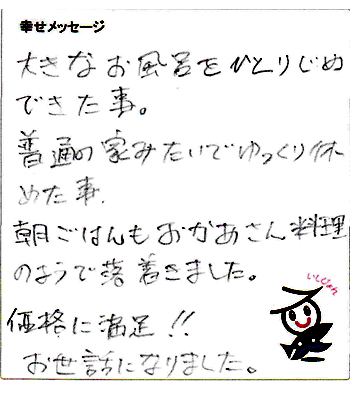 幸せメッセージ
大きなお風呂をひとりじめ
できた事。
普通の家みたいでゆっくり休
めた事.
朝ごはんもおかあさん料理
のようで落着きました。
価格に満足!!
お世話になりました。